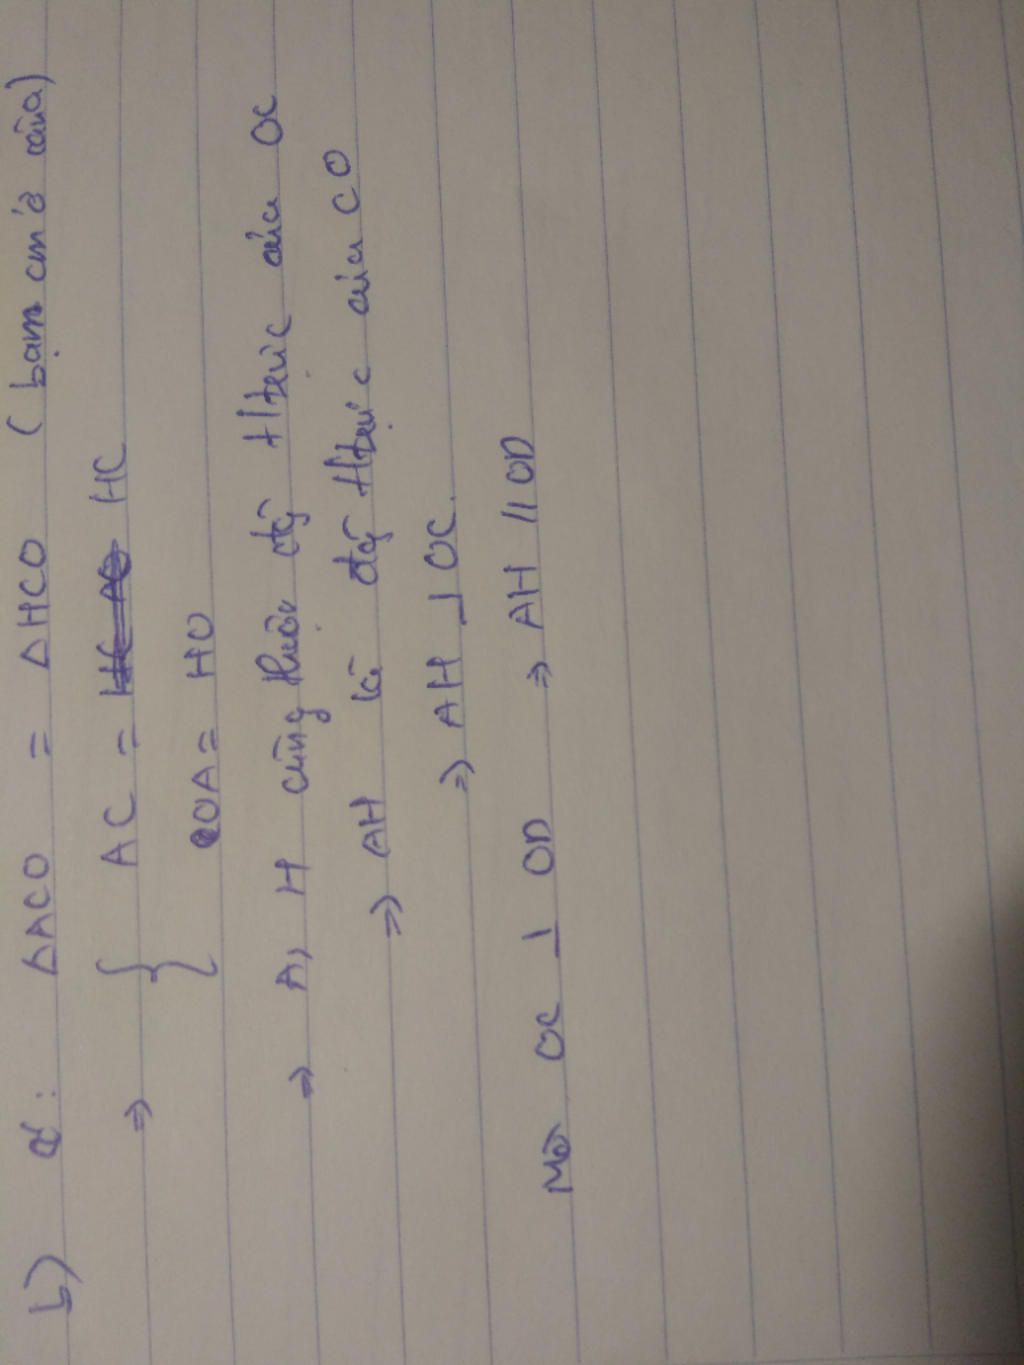 b) Có: ΔACO = ΔHCO (bạn cm ở câu a)
⇒ { AC = HC
OA = HO
⇒ A, H cùng thuộc đg ttrực của OC
⇒ AH là đg ttrực của CO
⇒ AH ⊥ OC.
Mà OC ⊥ OD ⇒ AH // OD